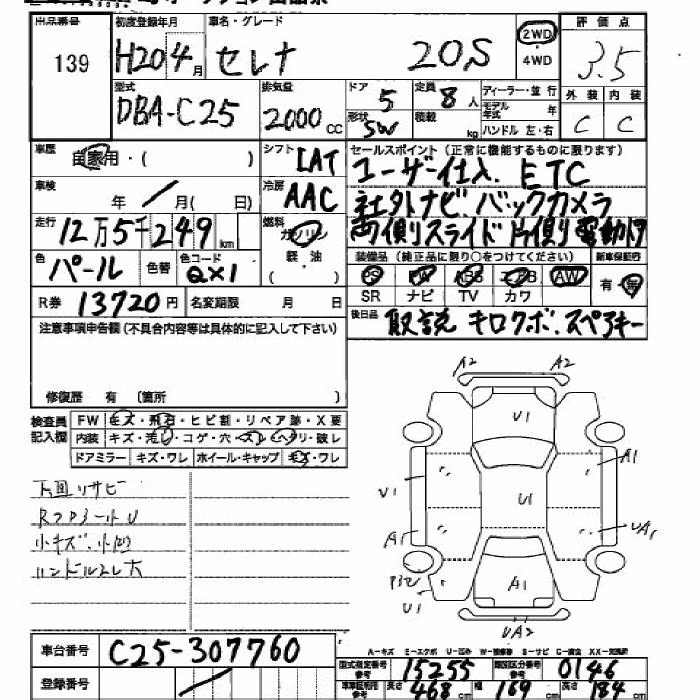 出品番号 初度登録年月 車名・グレード 評価点
139 H20 4月 セレナ 20S 2WD 4WD 3.5
型式 排気量 ドア 定員 ディーラー・並行 外装 内装
DBA-C25 2000cc 5 8人 モデル年式 年 C C
形状 SW 積載 kg ハンドル 左・右
車歴 自家用・( ) シフト LAT セールスポイント(正常に機能するものに限ります)
車検 年 月( 日) 冷房 AAC ユーザー仕入. ETC
社外ナビ バックカメラ
走行 12万5千249km 燃料 ガソリン 軽・油 ( ) 両側スライド 片側電動ドア
色 パール 色替 色コード QX1 装備品(純正品に限り○をつけてください) 新車保証書
PS PW ABS エアB AW 有・無
R券 13720円 名変期限 月 日 SR ナビ TV カワ
注意事項申告欄(不具合内容等は具体的に記入して下さい) 後日品 取説 キロクボ.スペアキー
修復歴 有 〔箇所 〕
検査員記入欄 FW キズ・飛石・ヒビ割・リペア跡・X要
内装 キズ・汚レ・コゲ・穴・スレ・ヘタリ・破レ
ドアミラー キズ・ワレ ホイール・キャップ キズ・ワレ
A2 A2
U1
A1
V1 U1
A1 UA1
A1
U1
UA2
下回リサビ
小キズ.小凹
ハンドルスレ大
車台番号 C25-307760
A-キズ E-エクボ U-凹み W-補修跡 S-サビ C-腐食 XX-交換済
登録番号
型式指定番号 参考 15255 類別区分番号 参考 0146
車車証記用 参考 長さ 468cm 幅 169cm 高さ 184cm